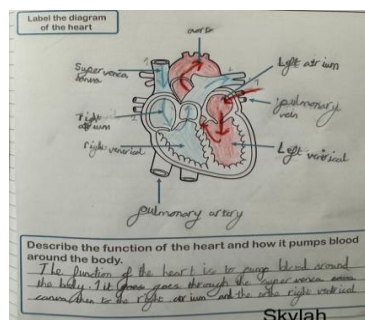 Label the diagram
of the heart
aorta
Super venca
canva
Left atrium
pulmonary
vein
right
atrium
right ventrical
Left ventrical
pulmonary artery
Describe the function of the heart and how it pumps blood
around the body.
The function of the heart is to pump blood around
the body. 1 it goes goes through the super venca
canva then to the right atrium and the right ventrical
Skylah